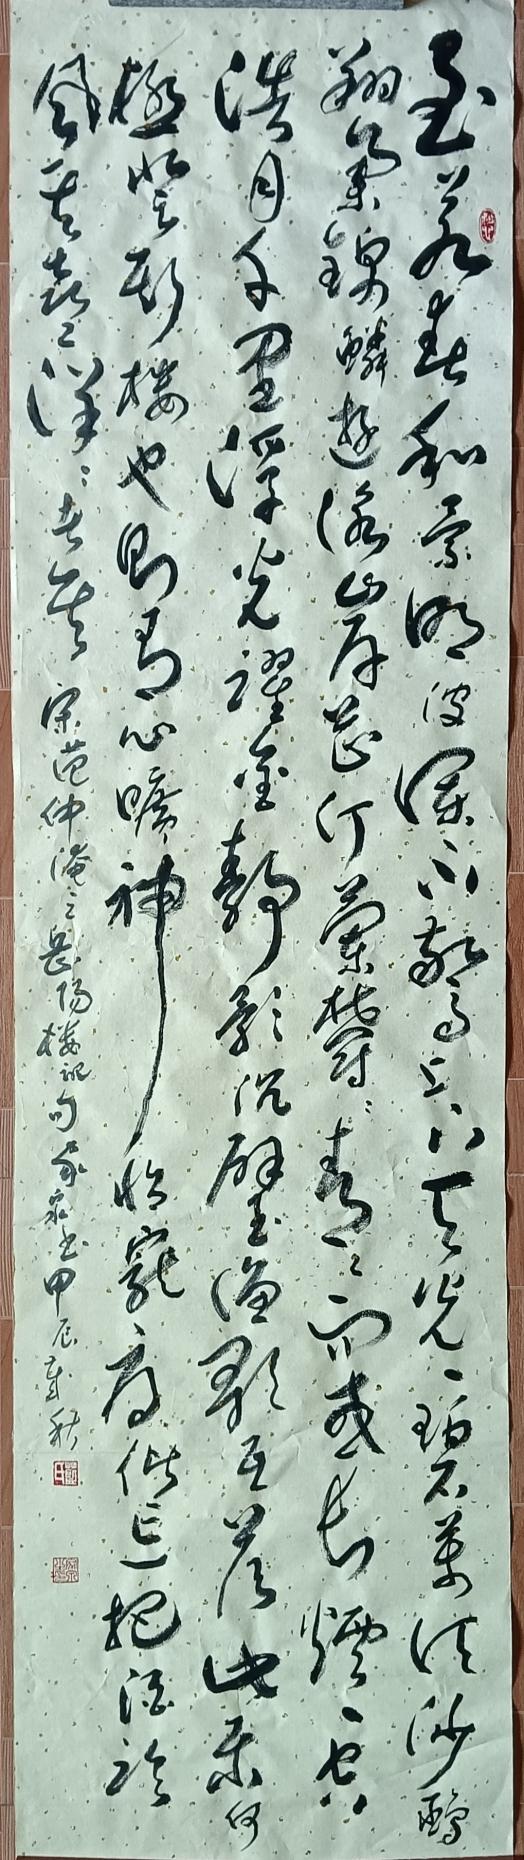 至若春和景明波澜不惊上下天光一碧万顷沙鸥
翔集锦鳞游泳岸芷汀兰郁郁青青而或长烟一空
皓月千里浮光耀金静影沉璧渔歌互答此乐何
极登斯楼也则有心旷神怡宠辱偕忘把酒临
风其喜喜洋洋者矣 宋范仲淹之岳阳楼记句 家泉书 甲辰岁秋